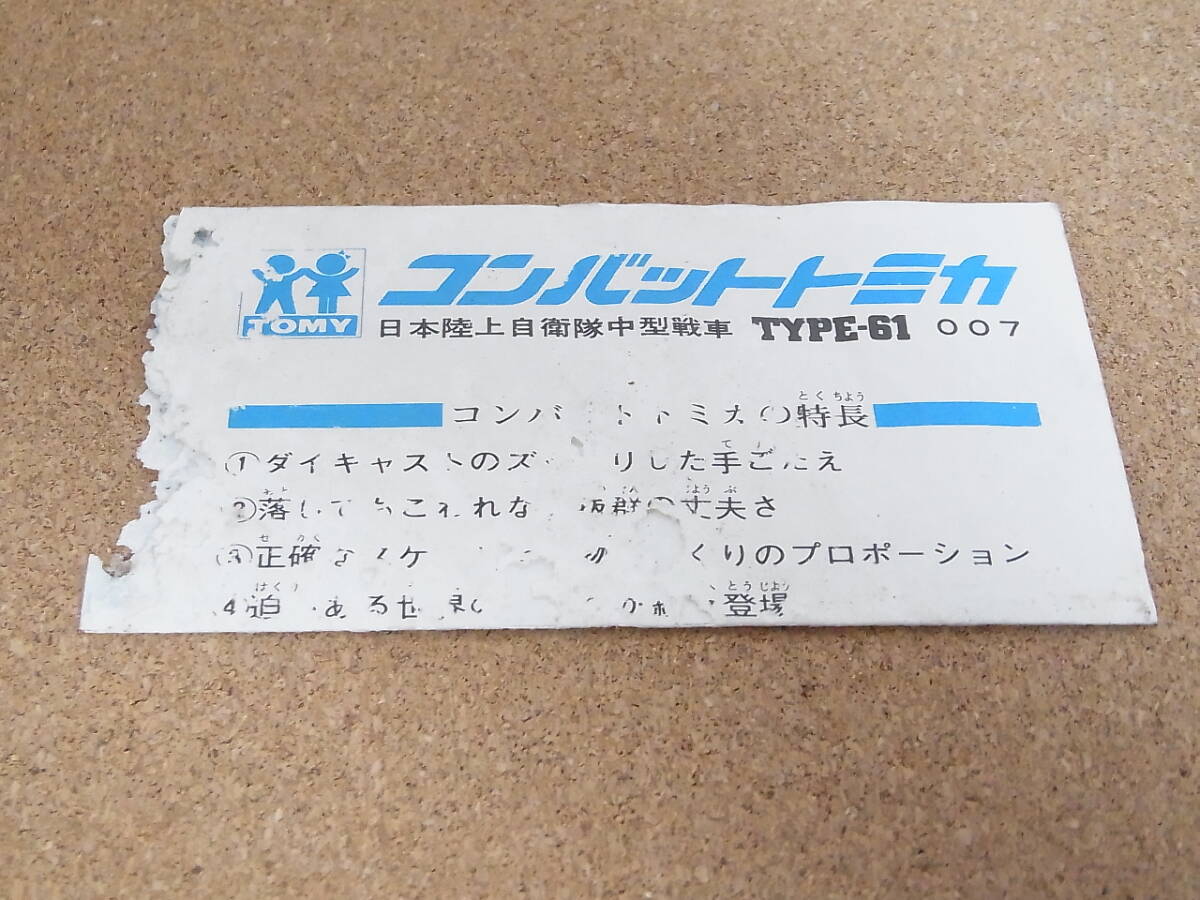 TOMY
コンバットトミカ
日本陸上自衛隊中型戦車 TYPE-61 007
コンバットトミカの特長
とくちよう
①ダイキャストのズッ りした手ごたえ
②落してもこわれない 抜群の丈夫さ
③正確なスケ くりのプロポーション
④迫 ある世 登場